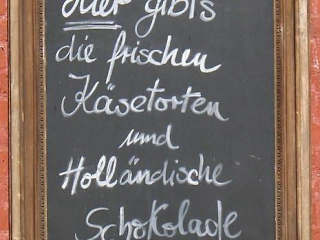 Hier gibts
die frischen
Käsetorten
und
Holländische
Schokolade